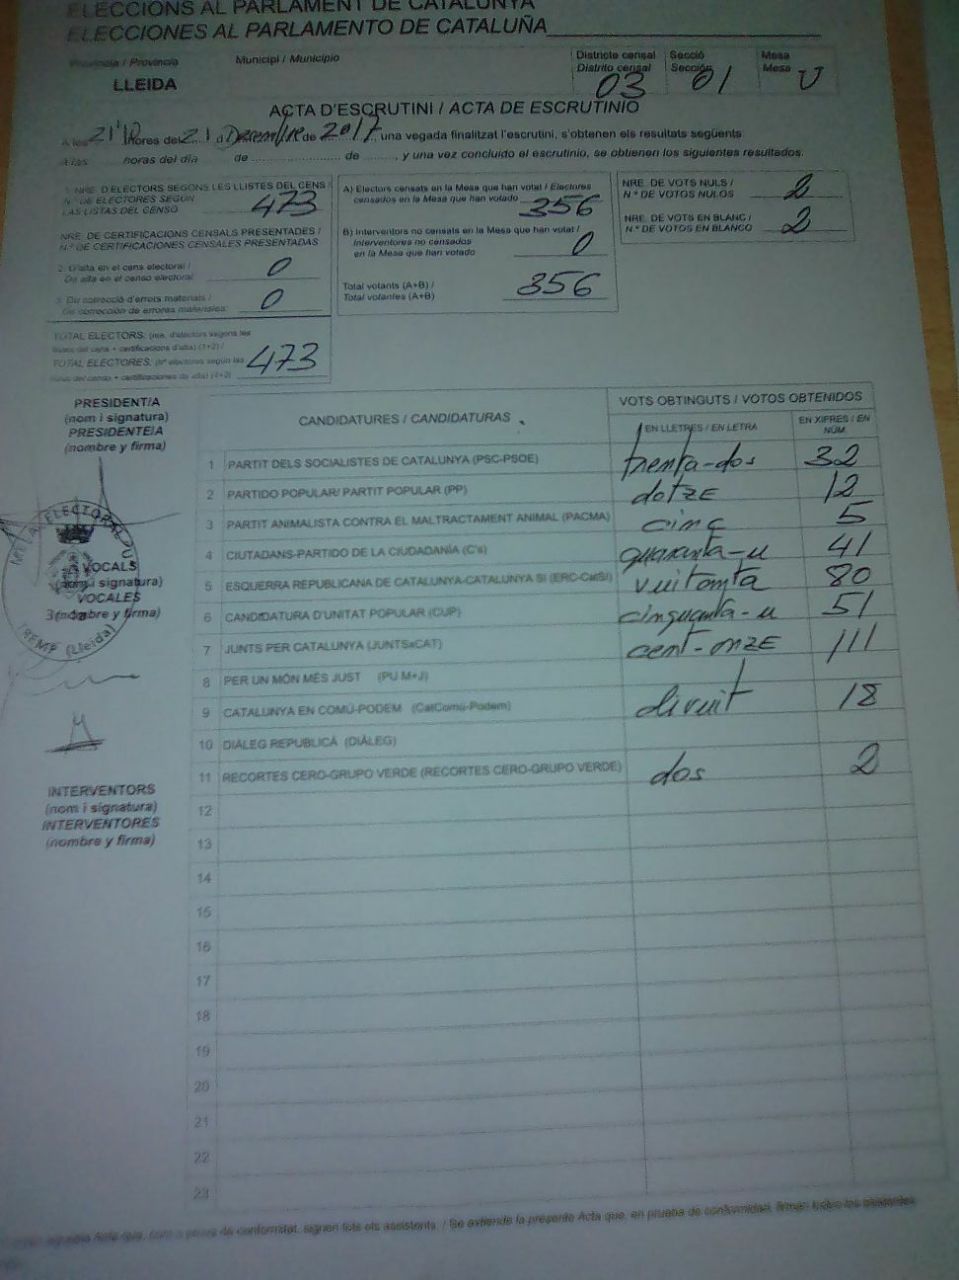 ELECCIONS AL PARLAMENT DE CATALUNYA
ELECCIONES AL PARLAMENTO DE CATALUÑA
Província / Provincia
LLEIDA
Municipi / Municipio
Districte censal
Distrito censal
03
Secció
Sección
01
Mesa
Mesa
U
ACTA D'ESCRUTINI / ACTA DE ESCRUTINIO
A les 21'10 hores del 21 d Desembre de 2017, una vegada finalitzat l'escrutini, s'obtenen els resultats següents
A las horas del día de de , y una vez concluido el escrutinio, se obtienen los siguientes resultados.
1. NRE. D'ELECTORS SEGONS LES LLISTES DEL CENS /
N.º DE ELECTORES SEGÚN
LAS LISTAS DEL CENSO
473
NRE. DE CERTIFICACIONS CENSALS PRESENTADES /
N.º DE CERTIFICACIONES CENSALES PRESENTADAS
2. D'alta en el cens electoral /
De alta en el censo electoral
0
3. De correcció d'errors materials /
De corrección de errores materiales:
0
TOTAL ELECTORS: (nre. d'electors segons les
llistes del cens + certificacions d'alta) (1+2) /
TOTAL ELECTORES: (Nº electores según las
listas del censo + certificaciones de alta) (1+2)
473
A) Electors censats en la Mesa que han votat / Electores
censados en la Mesa que han votado
356
B) Interventors no censats en la Mesa que han votat /
Interventores no censados
en la Mesa que han votado
0
Total votants (A+B) /
Total votantes (A+B)
356
NRE. DE VOTS NULS /
N.º DE VOTOS NULOS
2
NRE. DE VOTS EN BLANC /
N.º DE VOTOS EN BLANCO
2
PRESIDENT/A
(nom i signatura)
PRESIDENTE/A
(nombre y firma)
VOCALS
(nom i signatura)
VOCALES
(nombre y firma)
INTERVENTORS
(nom i signatura)
INTERVENTORES
(nombre y firma)
CANDIDATURES / CANDIDATURAS
VOTS OBTINGUTS / VOTOS OBTENIDOS
EN LLETRES / EN LETRA
EN XIFRES / EN
NÚM.
1 PARTIT DELS SOCIALISTES DE CATALUNYA (PSC-PSOE) trenta-dos 32
2 PARTIDO POPULAR/ PARTIT POPULAR (PP) dotze 12
3 PARTIT ANIMALISTA CONTRA EL MALTRACTAMENT ANIMAL (PACMA) cinc 5
4 CIUTADANS-PARTIDO DE LA CIUDADANÍA (C's) quaranta-u 41
5 ESQUERRA REPUBLICANA DE CATALUNYA-CATALUNYA SÍ (ERC-CatSí) vuitanta 80
6 CANDIDATURA D'UNITAT POPULAR (CUP) cinquanta-u 51
7 JUNTS PER CATALUNYA (JUNTSxCAT) cent-onze 111
8 PER UN MÓN MÉS JUST (PU M+J)
9 CATALUNYA EN COMÚ-PODEM (CatComú-Podem) divuit 18
10 DIÀLEG REPUBLICÀ (DIÀLEG)
11 RECORTES CERO-GRUPO VERDE (RECORTES CERO-GRUPO VERDE) dos 2
12
13
14
15
16
17
18
19
20
21
22
23
conformitat, signen tots els assistents. / Se extiende la presente Acta que, en prueba de conformidad, firman todos los asistentes.